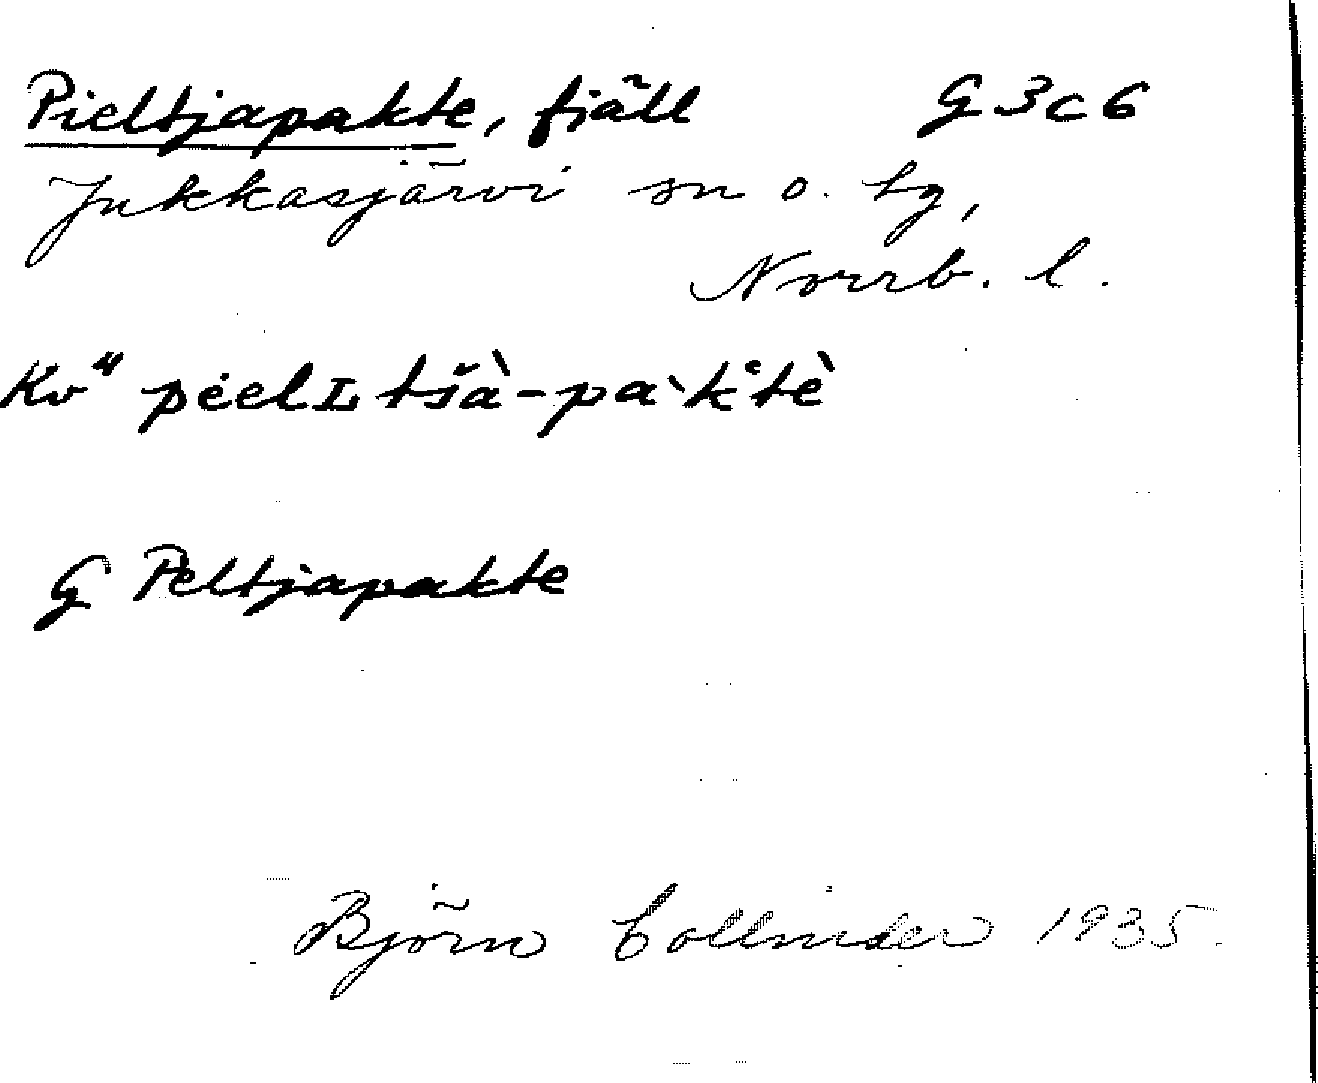 Pieltjapakte, fjäll G3c6
Jukkasjärvi sn o. tg,
Norrb. l.
Kv" pėelʟtšὰ-pὰk̔tὲ
G Peltjapakte
Björn Collinder 1935.